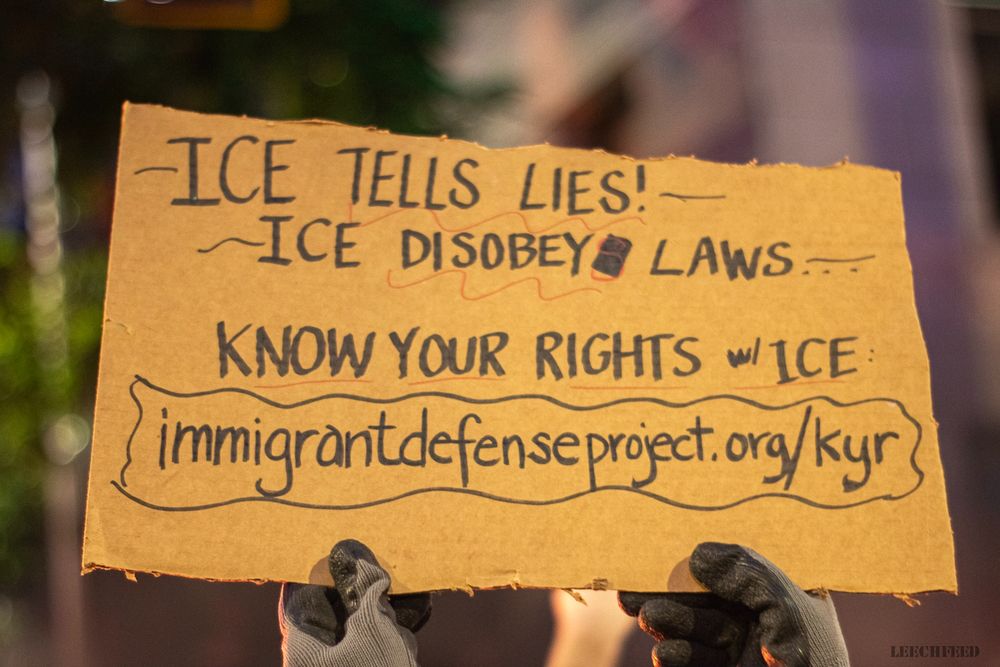 -ICE TELLS LIES!-
~ICE DISOBEY LAWS...-
KNOW YOUR RIGHTS w/ ICE:
immigrantdefenseproject.org/kyr
LEECHFEED